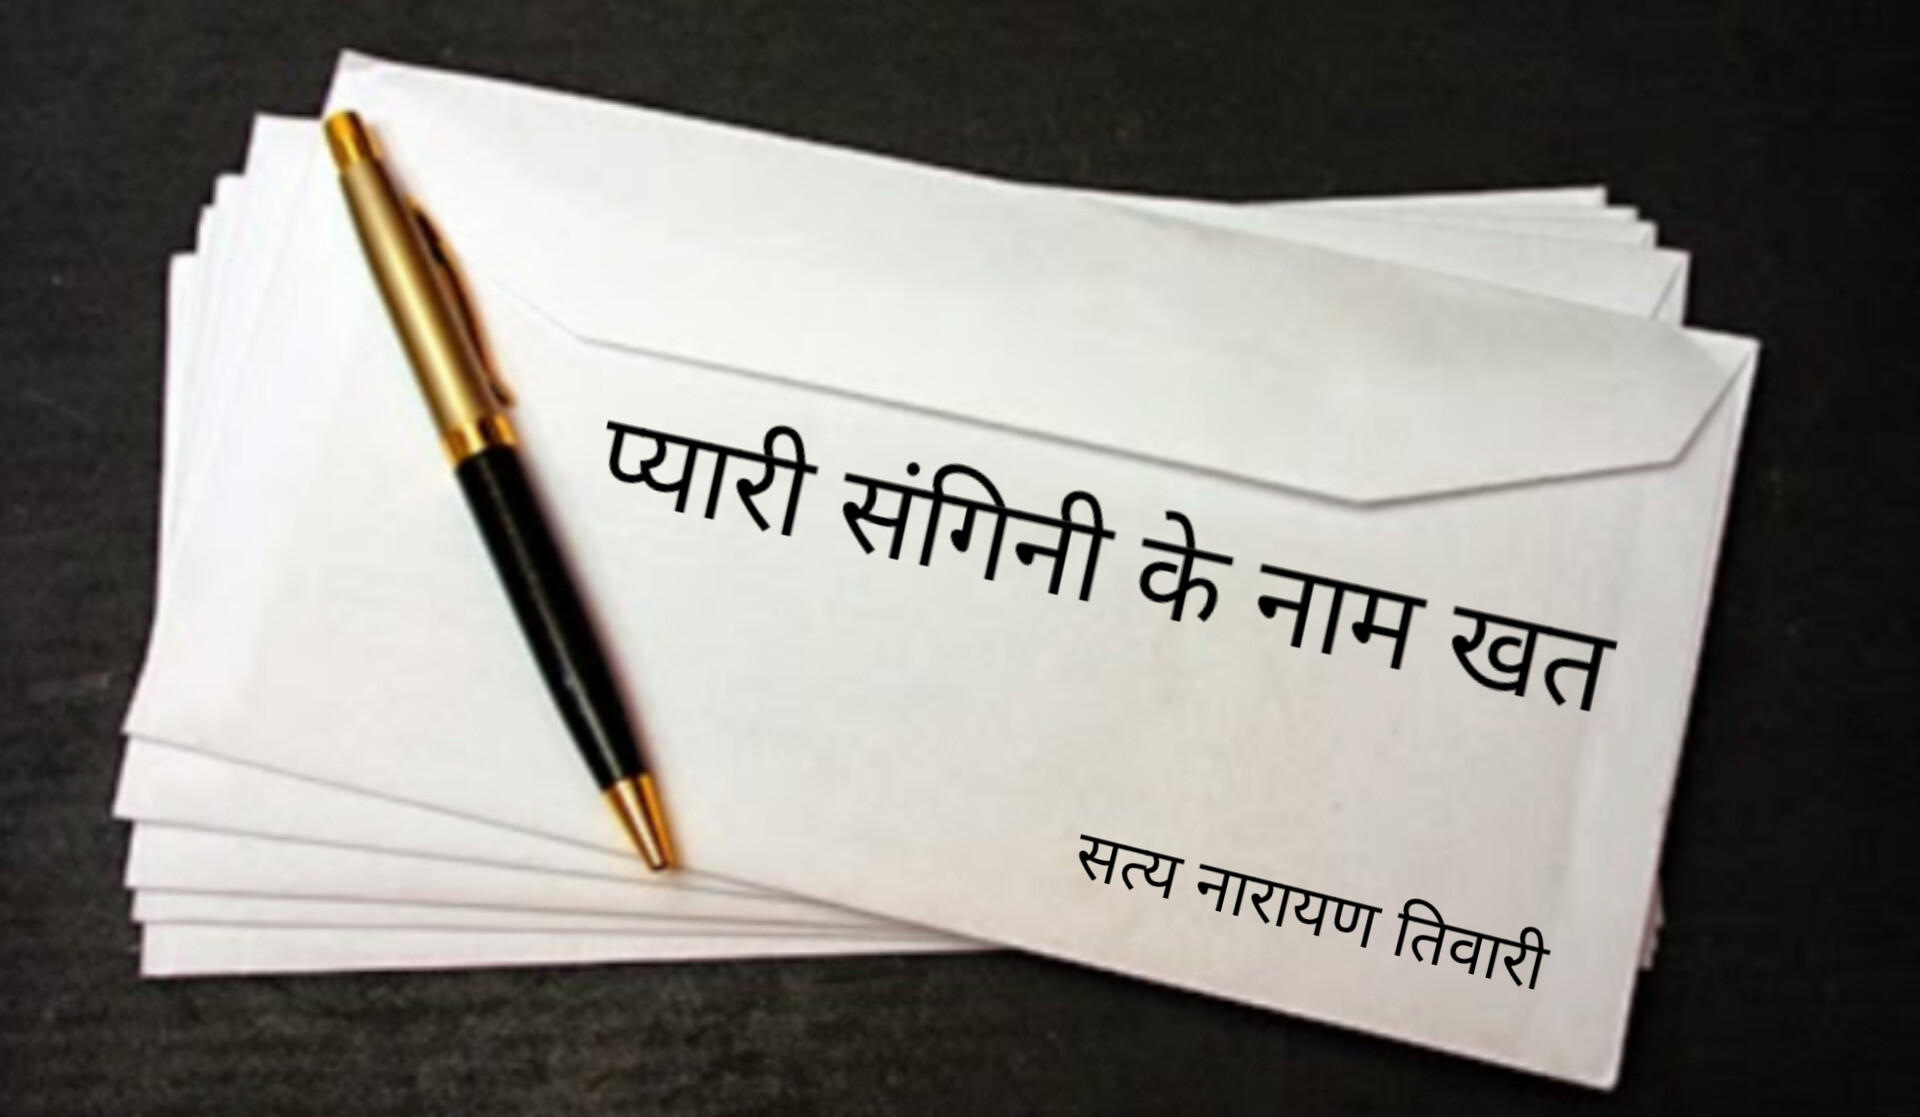 प्यारी संगिनी के नाम खत
सत्य नारायण तिवारी